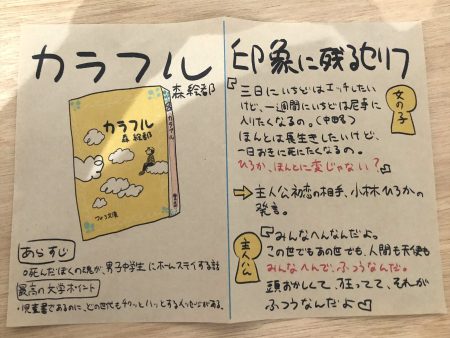 カラフル
森絵都
カラフル
森 絵都
カラフル
あらすじ
○死んだぼくの魂が、男子中学生にホームステイする話
最高の文学ポイント
・児童書であるのに、どの世代もチクッとハッとするメッセージがある。
印象に残るセリフ
『三日にいちどはエッチしたい
けど、一週間にいちどは尼寺に
入りたくなるの。(中略)
ほんとは長生きしたいけど、
一日おきに死にたくなるの。
ひろか、ほんとに変じゃない?』
女の子
⇨主人公初恋の相手、小林ひろかの
発言。
主人公
『みんなへんなんだよ。
この世でもあの世でも、人間も天使も
みんなへんで、ふつうなんだ。
頭おかしくて、狂ってて、それが
ふつうなんだよ』